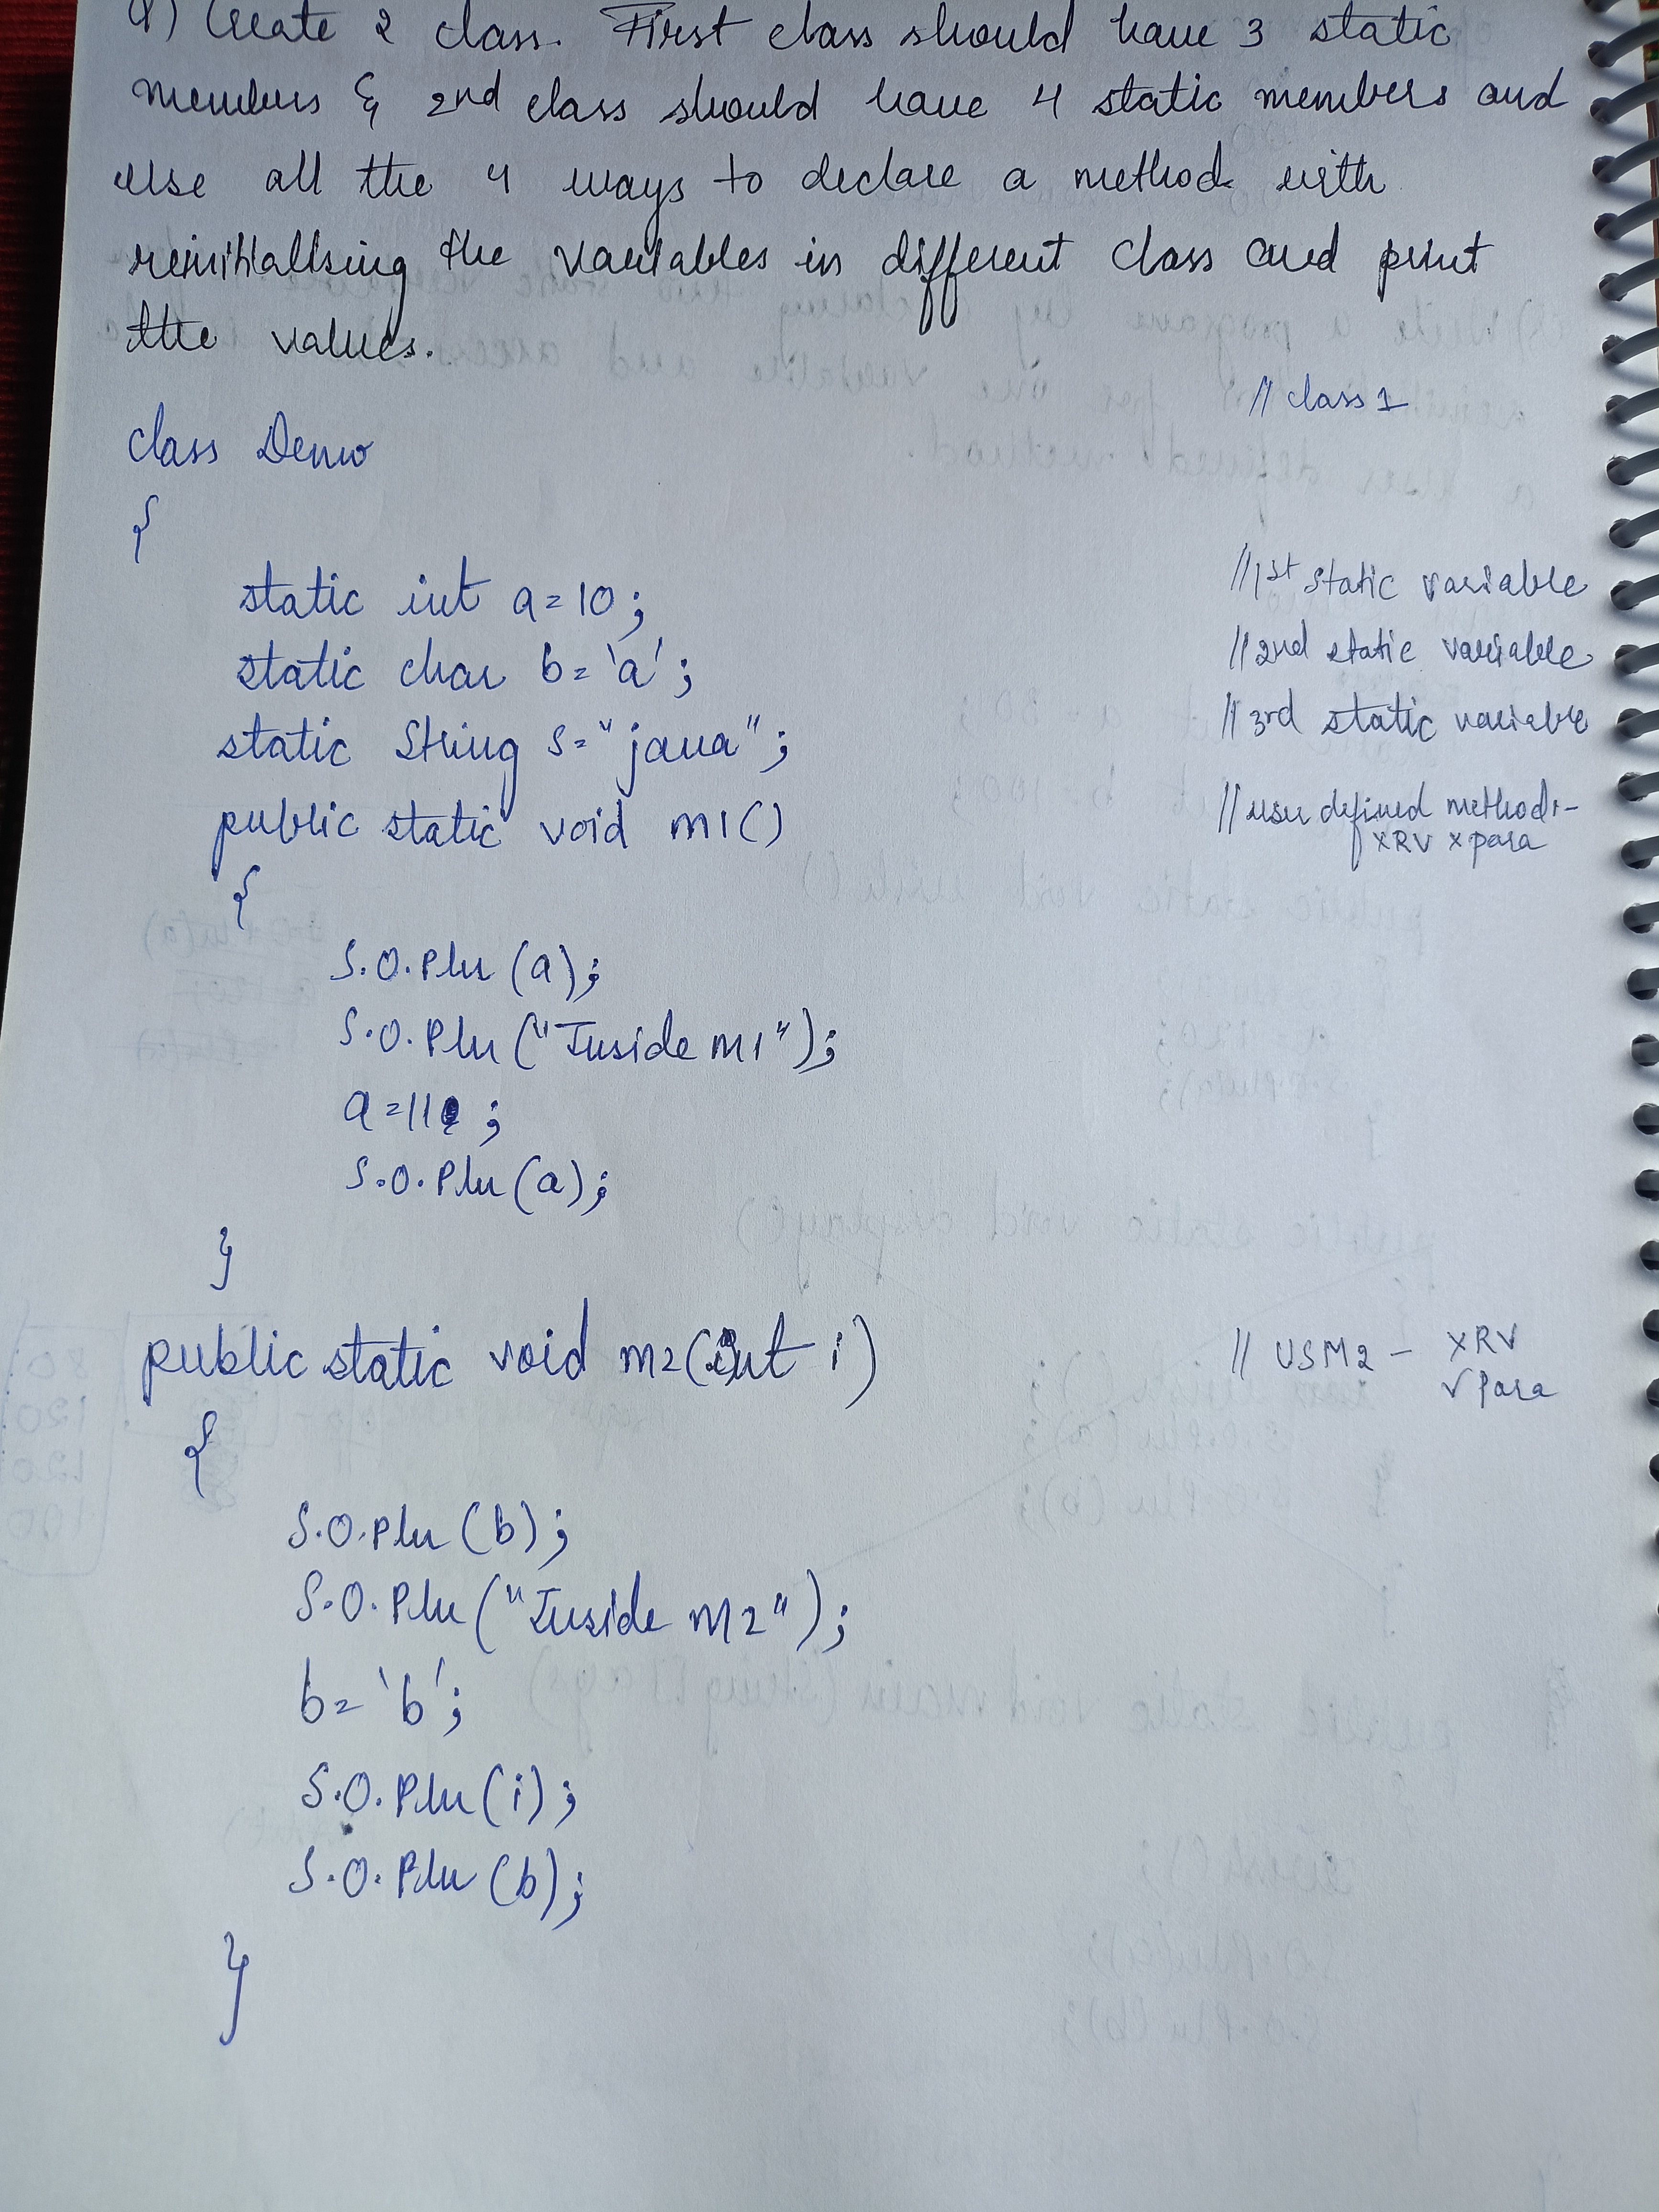 Q) Create 2 class. First class should have 3 static
members & 2nd class should have 4 static members and
use all the 4 ways to declare a method with
reinitialising the variables in different class and print
the values.
// class 1
class Demo
{
static int a=10; //1st static variable
static char b='a'; //2nd static variable
static String s="java"; //3rd static variable
public static void m1() //user defined method1-
xRV xpara
{
S.O.Pln(a);
S.O.Pln("Inside m1");
a=11;
S.O.Pln(a);
}
public static void m2(int i) // USM2 - xRV
√Para
{
S.O.Pln(b);
S.O.Pln("Inside m2");
b='b';
S.O.Pln(i);
S.O.Pln(b);
}